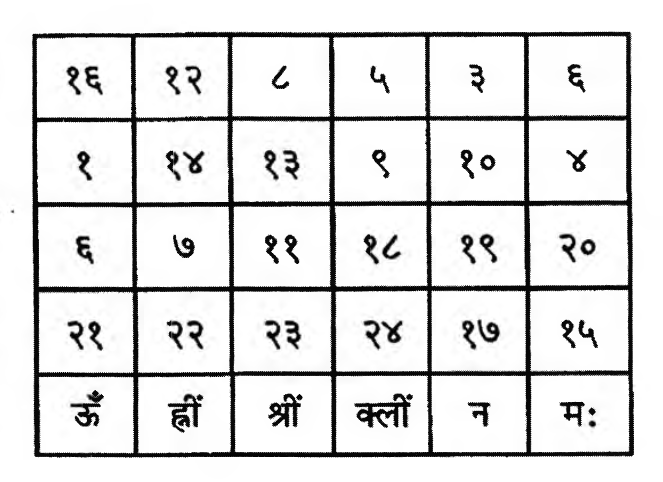 १६ १२ ८ ५ ३ ६
१ १४ १३ ९ १० ४
६ ७ ११ १८ १९ २०
२१ २२ २३ २४ १७ १५
ॐ ह्रीं श्रीं क्लीं न मः